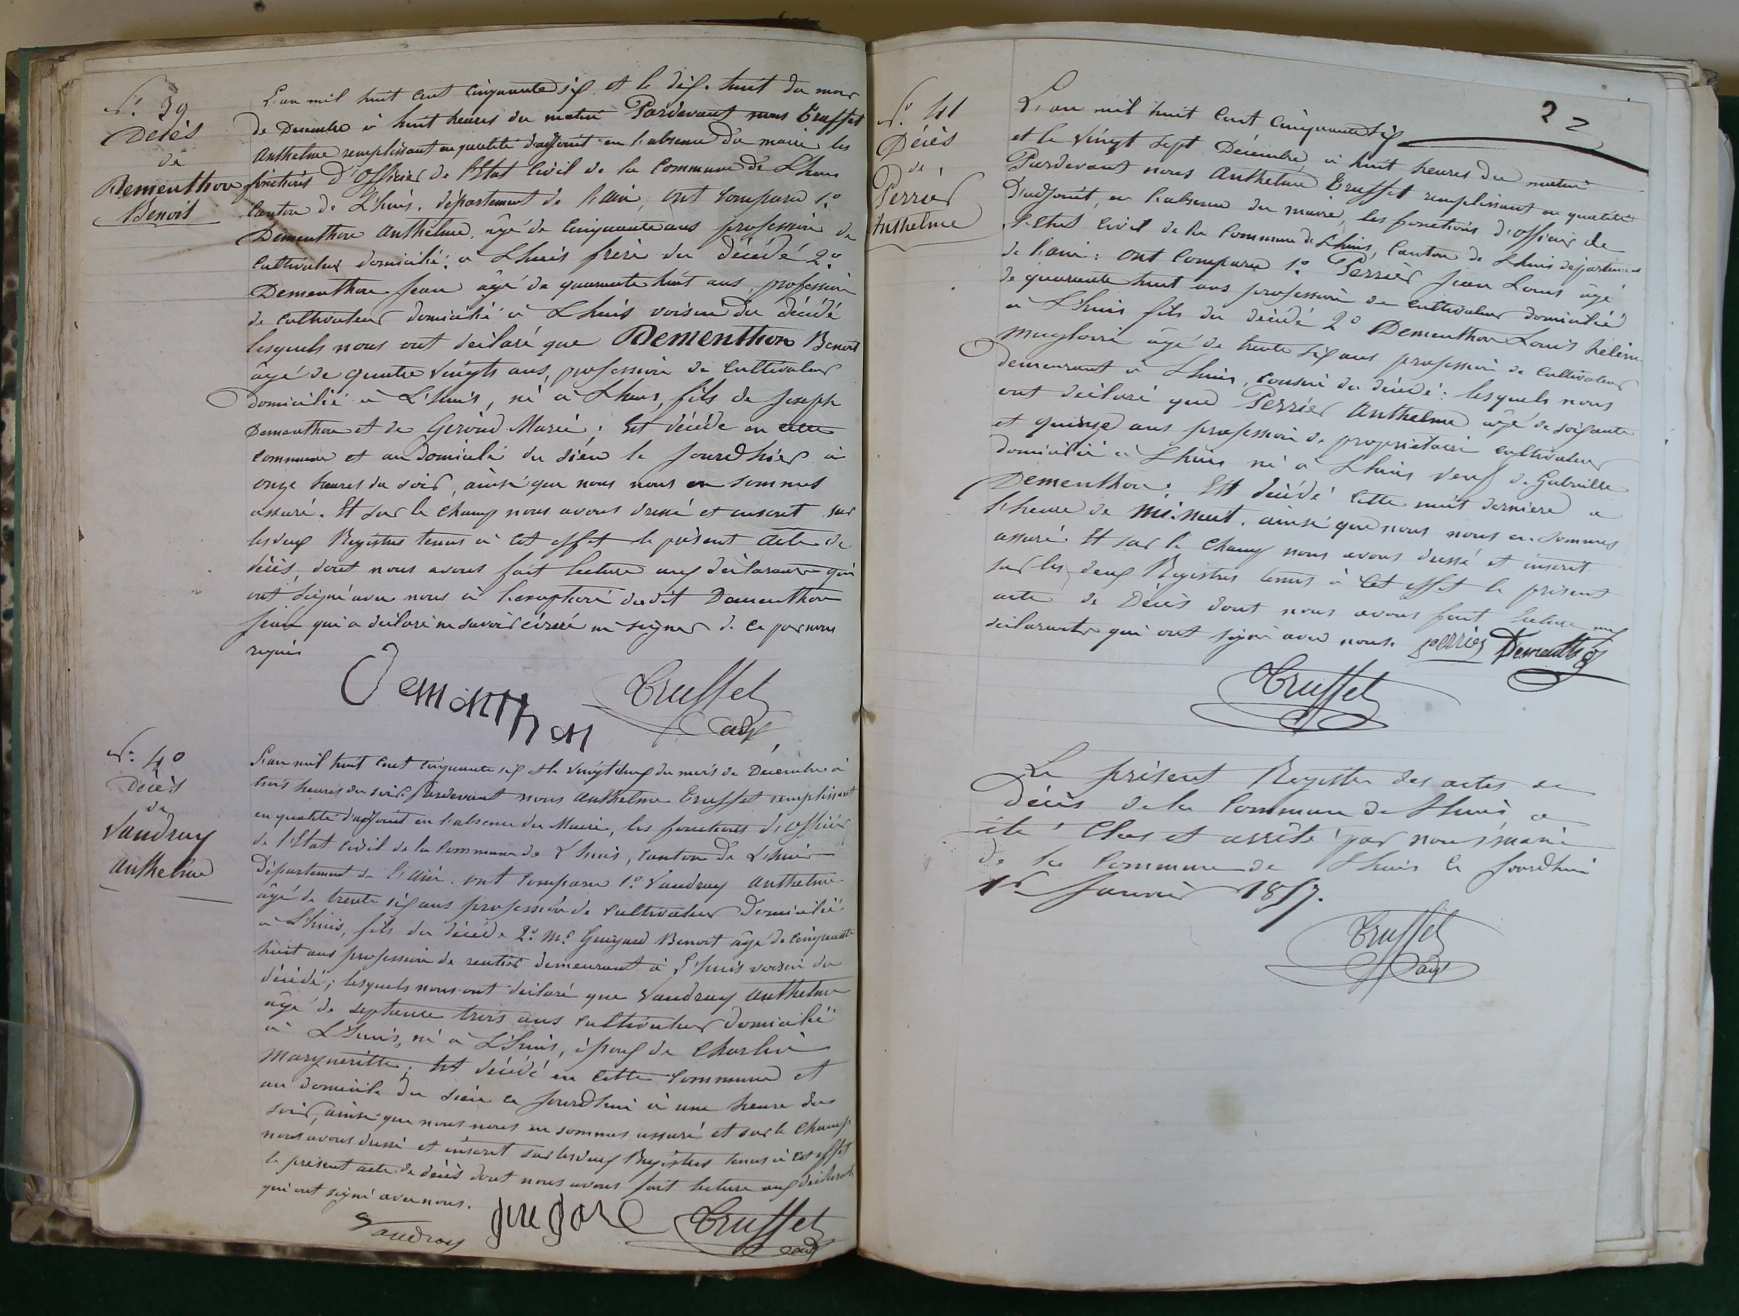 N.º 39
Décès
de
Dementhon
Benoit
L'an mil huit cent cinquante six et le dix-huit du mois
de Décembre à huit heures du matin Pardevant nous Truffet
Anthelme remplissant en qualité d'adjoint en l'absence du maire les
fonctions d'officier de l'Etat civil de la commune de Lhuis
Canton de Lhuis, département de l'ain, ont comparu 1.º
Dementhon Anthelme âgé de cinquante ans profession de
cultivateur domicilié à Lhuis frère du décédé 2.º
Dementhon Jean âgé de quarante huit ans, profession
de cultivateur domicilié à Lhuis voisin du décédé
lesquels nous ont déclaré que Dementhon Benoit
âgé de quatre vingts ans, profession de cultivateur
domicilié à L'huis, né à Lhuis, fils de Joseph
Dementhon et de Geroud Marie : Est décédé en cette
commune et au domicile du sien le jourd'hier à
onze heures du soir, ainsi que nous nous en sommes
assuré. Et sur le champ nous avons dressé et inscrit sur
les deux Registres tenus à cet effet le présent acte de
décès, dont nous avons fait lecture aux déclarants qui
ont signé avec nous à l'exception dudit Dementhon
Jean qui a déclaré ne savoir écrire ni signer de ce par nous
requis
Dementhon Truffet
adjt
N.º 40
Décès
de
Vaudray
Anthelme
L'an mil huit cent cinquante six et le vingt deux du mois de Décembre à
trois heures du soir Pardevant nous Anthelme Truffet remplissant
en qualité d'adjoint en l'absence du Maire, les fonctions d'officier
de l'Etat civil de la commune de Lhuis, canton de Lhuis
Département de l'ain. ont comparu 1.º Vaudray Anthelme
âgé de trente six ans profession de cultivateur domicilié
à Lhuis, fils du décédé 2.º Mr Guigard Benoit âgé de cinquante
huit ans profession de rentier demeurant à Lhuis voisin du
décédé; lesquels nous ont déclaré que Vaudray Anthelme
âgé de septante trois ans cultivateur domicilié
à L'huis, né à L'huis, époux de Charlin
Marguerite. Est décédé en cette commune et
au domicile du sien ce jourd'hui à une heure du
soir, ainsi que nous nous en sommes assuré et sur le champ
nous avons dressé et inscrit sur les deux Registres tenus à cet effet
le présent acte de décès dont nous avons fait lecture aux déclarants
qui ont signé avec nous.
Vaudray Truffet
adjt
22
N.º 41
Décès
de
Perrier
Anthelme
L'an mil huit cent cinquante six
et le vingt sept Décembre à huit heures du matin
Pardevant nous Anthelme Truffet remplissant en qualité
D'adjoint, en l'absence du maire, les fonctions d'officier de
l'Etat civil de la commune de Lhuis, Canton de Lhuis département
de l'ain : ont comparu 1.º Perrier Jean Louis âgé
de quarante huit ans profession de cultivateur domicilié
à Lhuis fils du décédé 2.º Dementhon Louis hélène
Magloire âgé de trente six ans profession de cultivateur
demeurant à Lhuis, cousin du décédé : lesquels nous
ont déclaré que Perrier Anthelme âgé de soixante
et quinze ans profession de propriétaire cultivateur
domicilié à Lhuis né à Lhuis veuf de Gabrielle
Dementhon; Est décédé cette nuit dernière à
l'heure de minuit. ainsi que nous nous en sommes
assuré. Et sur le champ nous avons dressé et inscrit
sur les deux Registres tenus à cet effet le présent
acte de Décès dont nous avons fait lecture aux
déclarants qui ont signé avec nous. perrier Dementhon
Truffet
Le présent Registre des actes de
Décès de la Commune de Lhuis a
été clos et arrêté par nous maire
de la Commune de Lhuis ce jourd'hui
1er Janvier 1857.
Truffet
adjt